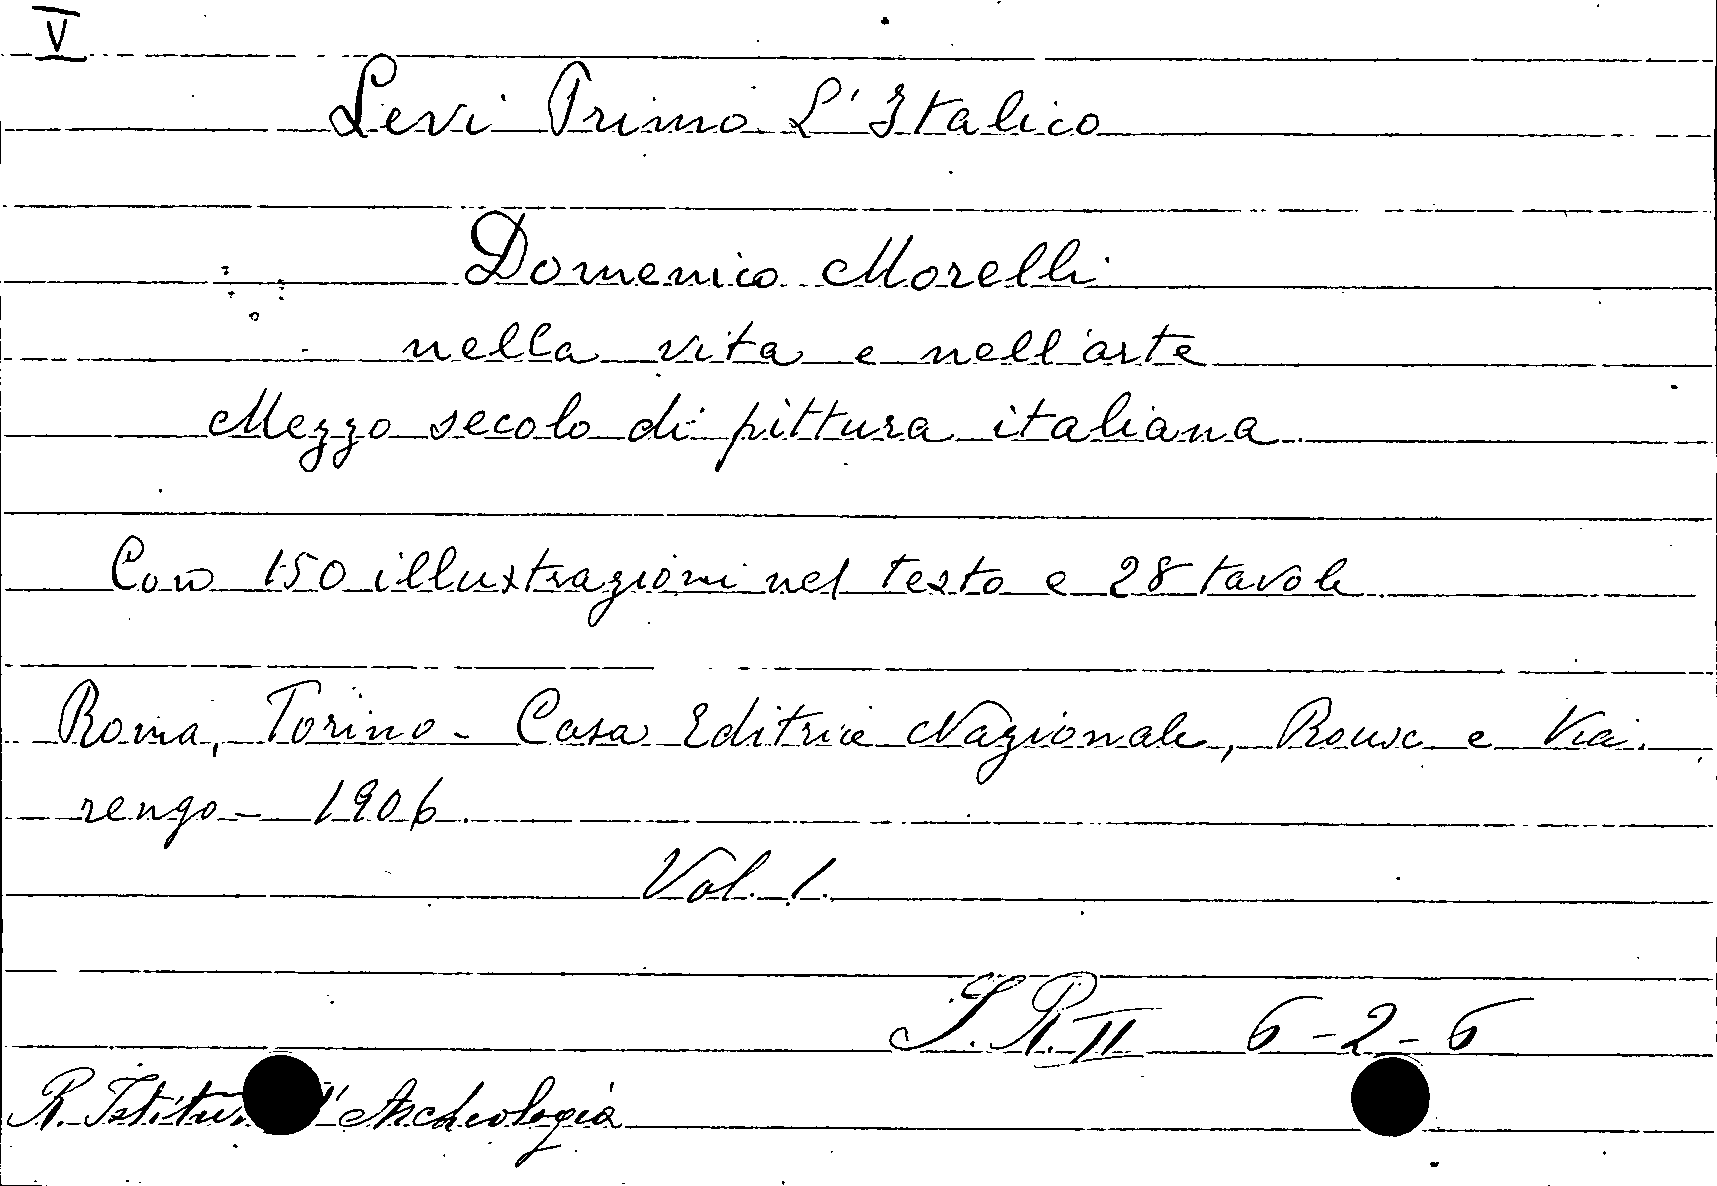 V
Levi Primo L'Italico
Domenico Morelli
nella vita e nell'arte
Mezzo secolo di pittura italiana
Con 150 illustrazioni nel testo e 28 tavole
Roma, Torino - Casa Editrice Nazionale, Roux e Via-
rengo - 1906
Vol. 1.
S. R. II 6-2-6
R. Istitu d'Archeologia